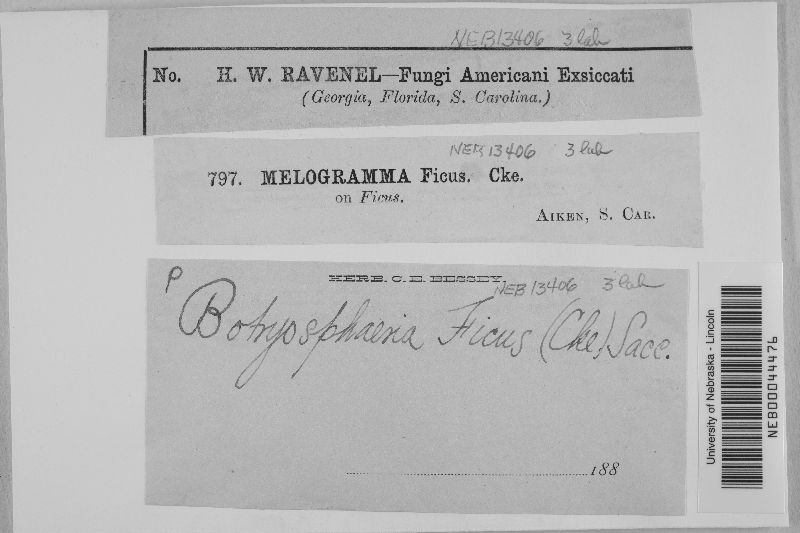 NEB13406 3 lab
No. H. W. RAVENEL—Fungi Americani Exsiccati
(Georgia, Florida, S. Carolina.)
NEB 13406 3 lab
797. MELOGRAMMA Ficus. Cke.
on Ficus.
AIKEN, S. CAR.
P
HERB. C. E. BESSEY.
NEB 13406 3 lab
Botryosphaeria Ficus (Cke) Sacc.
188
University of Nebraska - Lincoln
NEB00044476